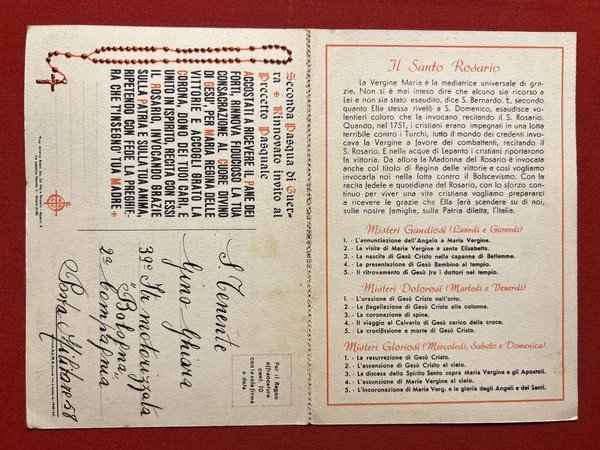 Seconda Pasqua di Guer-
ra + Rinnovato invito al
Precetto Pasquale
ACCOSTATI A RICEVERE IL PANE DEI
FORTI, RINNOVA FIDUCIOSO LA TUA
CONSACRAZIONE AL CUORE DIVINO
DI GESU', PER MARIA REGINA DELLE
VITTORIE E ACCOLTI DELLA TUA
CORONA, DONO DEI TUOI CARI, E
UNITO IN SPIRITO, RECITA CON ESSI
IL ROSARIO, INVOCANDO GRAZIE
SULLA PATRIA E SULLA TUA ANIMA,
RIPETENDO CON FEDE LA PREGHIE-
RA CHE T'INSEGNÒ TUA MADRE +
Per il Regno
affrancatura
cent. 10
con la sola firma
e data
S Tenente
Gino Ghisia
39º Ftr motorizzata
"Bologna"
2ª Compagnia
Posta Militare 58
Il Santo Rosario
La Vergine Maria è la mediatrice universale di gra-
zie. Non si è mai inteso dire che alcuno sia ricorso a
Lei e non sia stato esaudito, dice S. Bernardo. E, secondo
quanto Ella stessa rivelò a S. Domenico, esaudisce vo-
lentieri coloro che la invocano recitando il S. Rosario.
Quando, nel 1751, i cristiani erano impegnati in una lotta
terribile contro i Turchi, tutto il mondo dei credenti invo-
cava la Vergine a favore dei combattenti, recitando il
S. Rosario. E nelle acque di Lepanto i cristiani riportarono
la vittoria. Da allora la Madonna del Rosario è invocata
anche col titolo di Regina delle vittorie e così vogliamo
invocarla noi nella lotta contro il Bolscevismo. Con la
recita fedele e quotidiana del Rosario, con lo sforzo conti-
nuo per vivere una vita cristiana vogliamo prepararci
a ricevere le grazie che Ella farà scendere su di noi,
sulle nostre famiglie, sulla Patria diletta, l'Italia.
Misteri Gaudiosi (Lunedì e Giovedì)
1. - L'annunciazione dell'Angelo a Maria Vergine.
2. - La visita di Maria Vergine a santa Elisabetta.
3. - La nascita di Gesù Cristo nella capanna di Betlemme.
4. - La presentazione di Gesù Bambino al tempio.
5. - Il ritrovamento di Gesù tra i dottori nel tempio.
Misteri Dolorosi (Martedì e Venerdì)
1. - L'orazione di Gesù Cristo nell'orto.
2. - La flagellazione di Gesù Cristo alla colonna.
3. - La coronazione di spine.
4. - Il viaggio al Calvario di Gesù carico della croce.
5. - La crocifissione e morte di Gesù Cristo.
Misteri Gloriosi (Mercoledì, Sabato e Domenica)
1. - La resurrezione di Gesù Cristo.
2. - L'ascensione di Gesù Cristo al cielo.
3. - La discesa dello Spirito Santo sopra Maria Vergine e gli Apostoli.
4. - L'assunzione di Maria Vergine al cielo.
5. - L'incoronazione di Maria Verg. e la gloria degli Angeli e dei Santi.